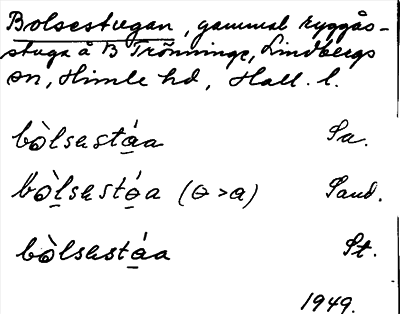 Bolsestugan, gammal ryggås-
stuga å B Trönninge, Lindbergs
sn, Himle hd, Hall. l.
bòlsastá̱a Sa.
bò̱lsastó̱a (o > a) Sand.
bòlsastá̱a St.
1949.